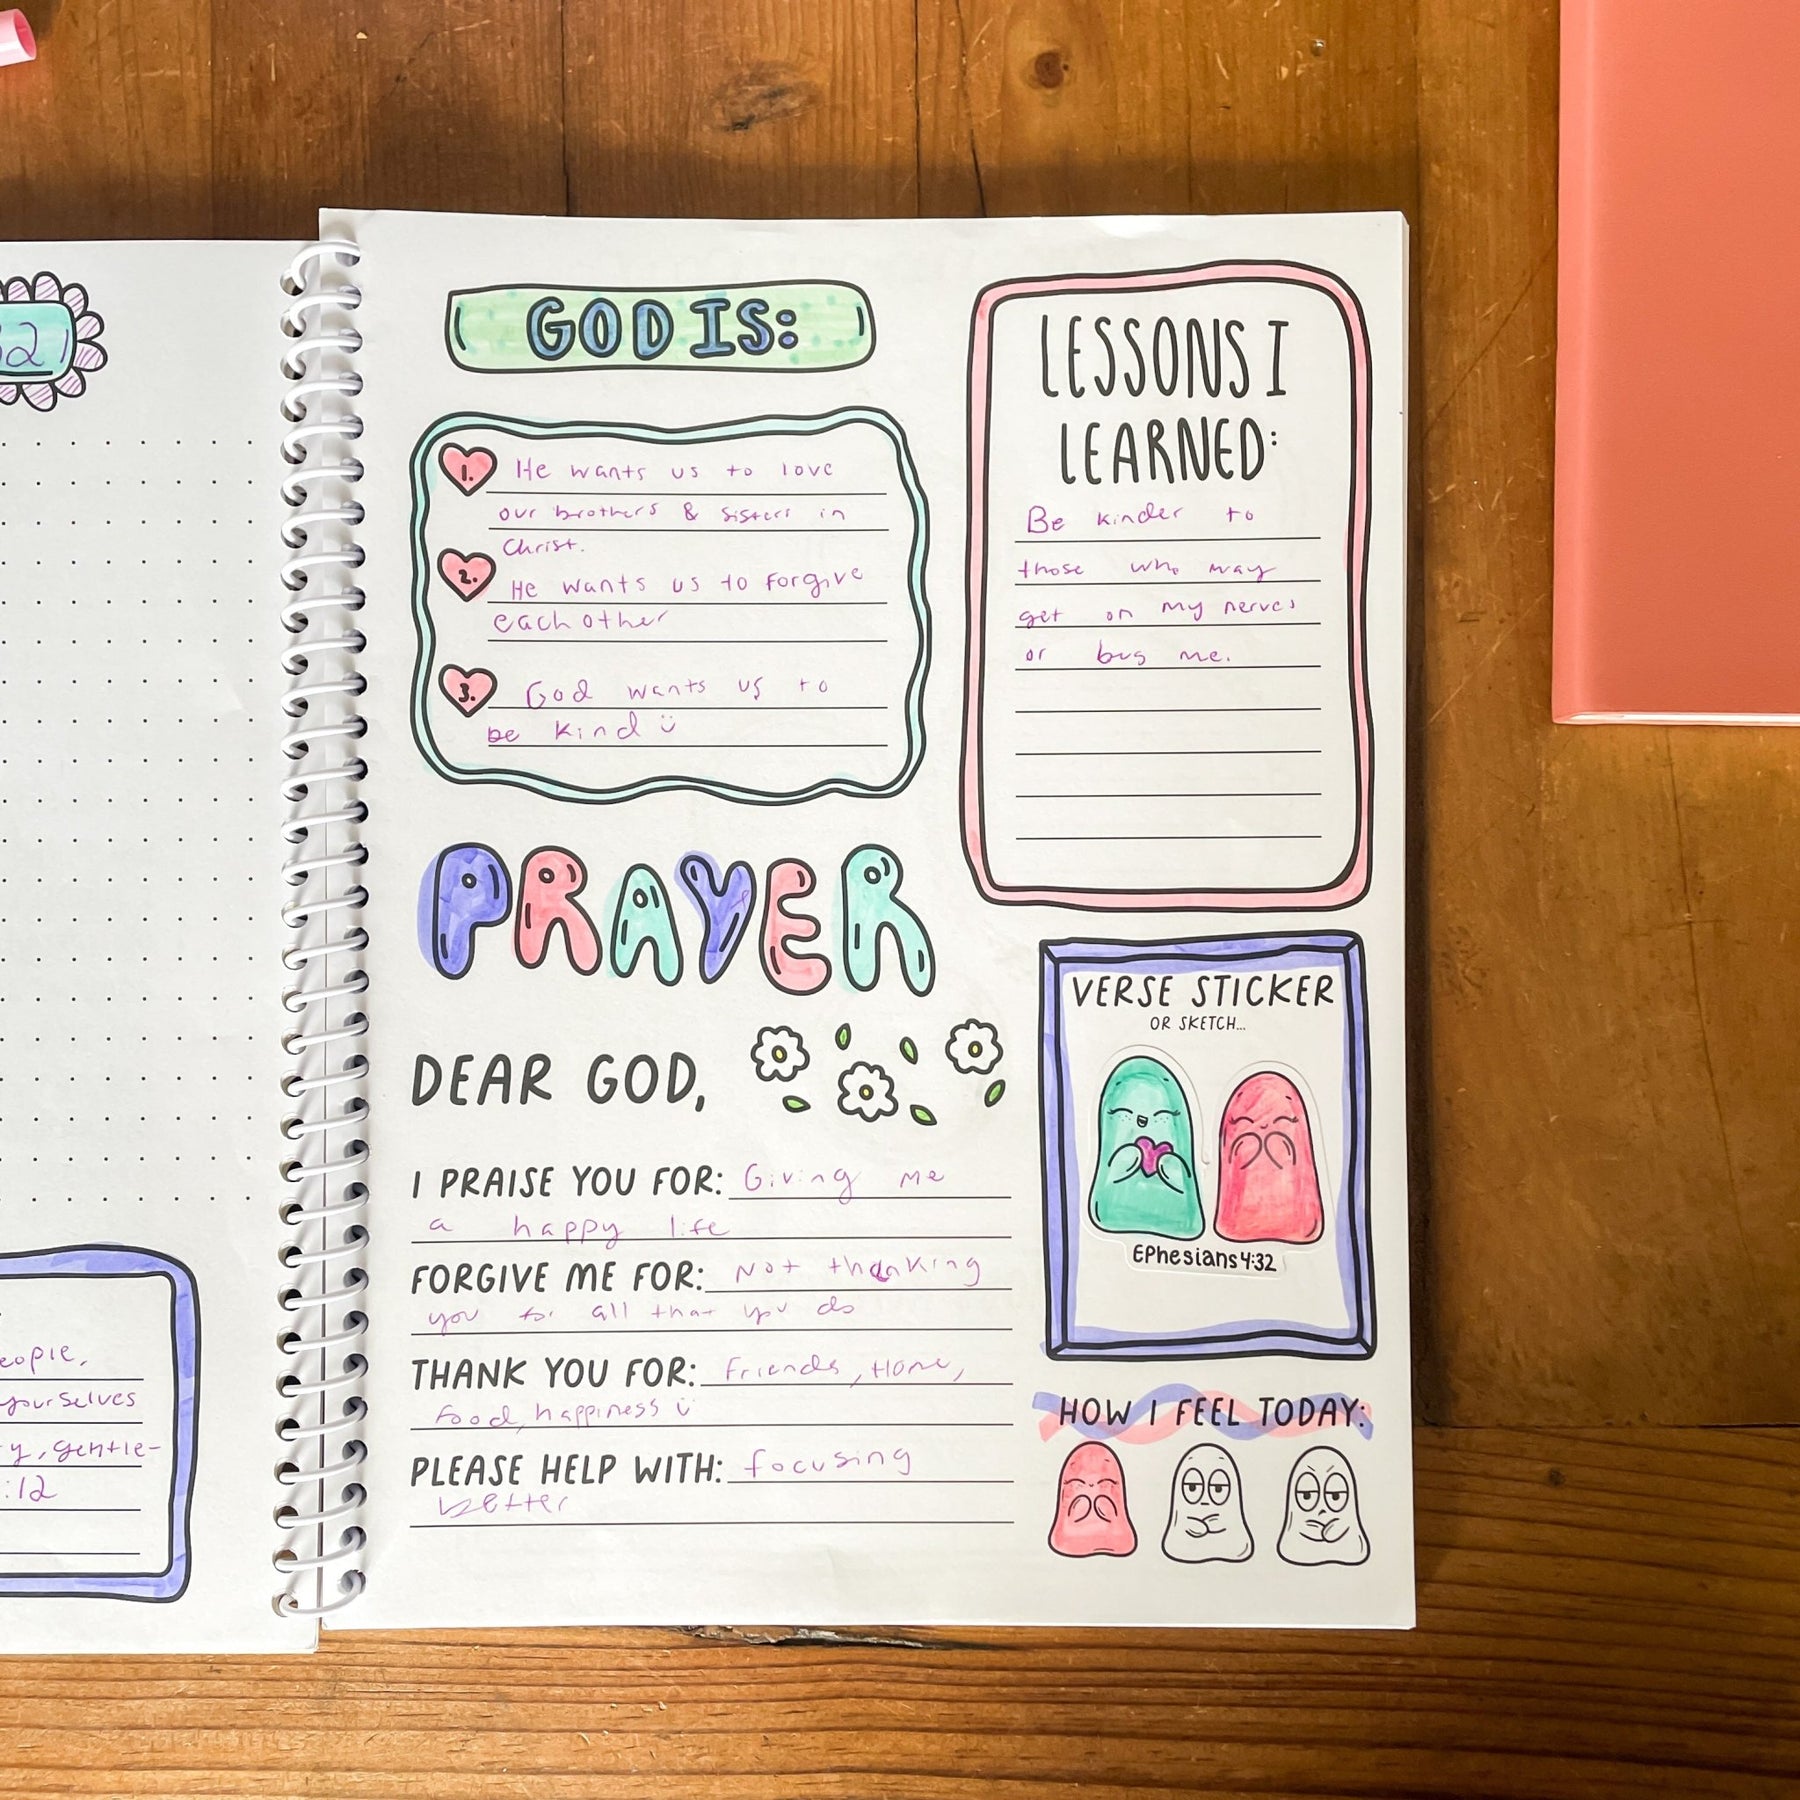 32
eople,
yourselves
y, gentle-
:12
GOD IS:
1. He wants us to love
our brothers & sisters in
Christ.
2. He wants us to forgive
each other
3. God wants us to
be kind
LESSONS I
LEARNED:
Be kinder to
those who may
get on my nerves
or bug me.
PRAYER
DEAR GOD,
I PRAISE YOU FOR: Giving me
a happy life
FORGIVE ME FOR: Not thanking
you for all that you do
THANK YOU FOR: Friends, Home,
food, happiness
PLEASE HELP WITH: focusing
better
VERSE STICKER
OR SKETCH...
EPhesians 4:32
HOW I FEEL TODAY: